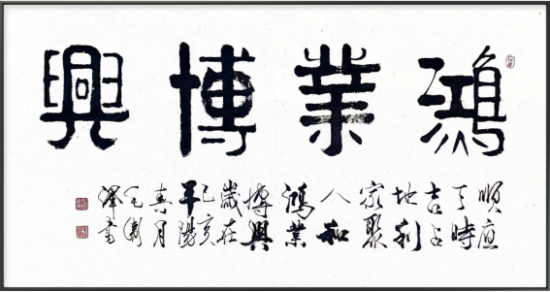 鴻業博興
順应
天時
吉占
地利
家聚
人和
鴻業
博興
歲在
己亥
平陽
春月
澤書